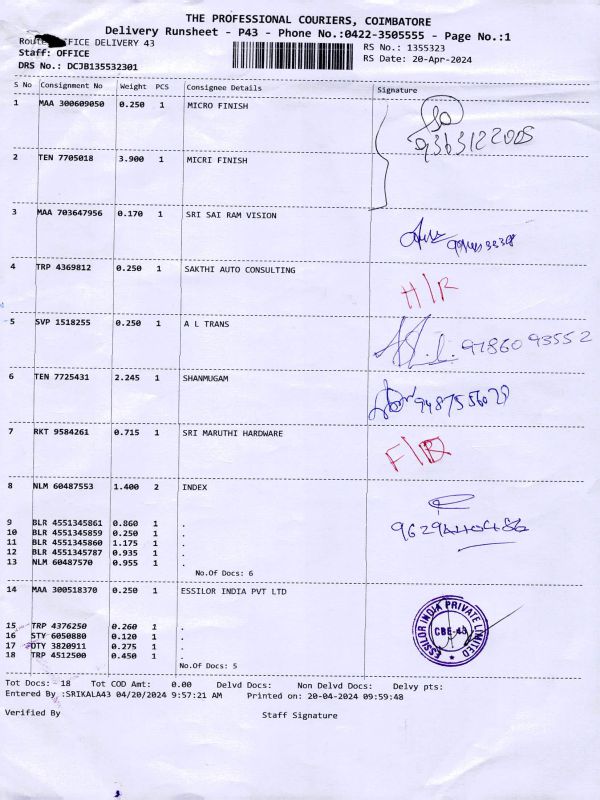 THE PROFESSIONAL COURIERS, COIMBATORE
Delivery Runsheet - P43 - Phone No.:0422-3505555 - Page No.:1
OFFICE DELIVERY 43 RS No.: 1355323
Staff: OFFICE RS Date: 20-Apr-2024
DRS No.: DCJB135532301
S No Consignment No Weight PCS Consignee Details Signature
1 MAA 300609050 0.250 1 MICRO FINISH
9363122005
2 TEN 7705018 3.900 1 MICRI FINISH
3 MAA 703647956 0.170 1 SRI SAI RAM VISION
4 TRP 4369812 0.250 1 SAKTHI AUTO CONSULTING
H/R
5 SVP 1518255 0.250 1 A L TRANS
9786093552
6 TEN 7725431 2.245 1 SHANMUGAM
7 RKT 9584261 0.715 1 SRI MARUTHI HARDWARE
8 NLM 60487553 1.400 2 INDEX
9 BLR 4551345861 0.860 1 .
10 BLR 4551345859 0.250 1 .
11 BLR 4551345860 1.175 1 .
12 BLR 4551345787 0.935 1 .
13 NLM 60487570 0.955 1 .
No.Of Docs: 6
14 MAA 300518370 0.250 1 ESSILOR INDIA PVT LTD
ESSILOR INDIA PRIVATE LIMITED
CBE-43
15 TRP 4376250 0.260 1 .
16 STY 6050880 0.120 1 .
17 OTY 3820911 0.275 1 .
18 TRP 4512500 0.450 1 .
No.Of Docs: 5
Tot Docs: 18 Tot COD Amt: 0.00 Delvd Docs: Non Delvd Docs: Delvy pts:
Entered By :SRIKALA43 04/20/2024 9:57:21 AM Printed on: 20-04-2024 09:59:48
Verified By Staff Signature